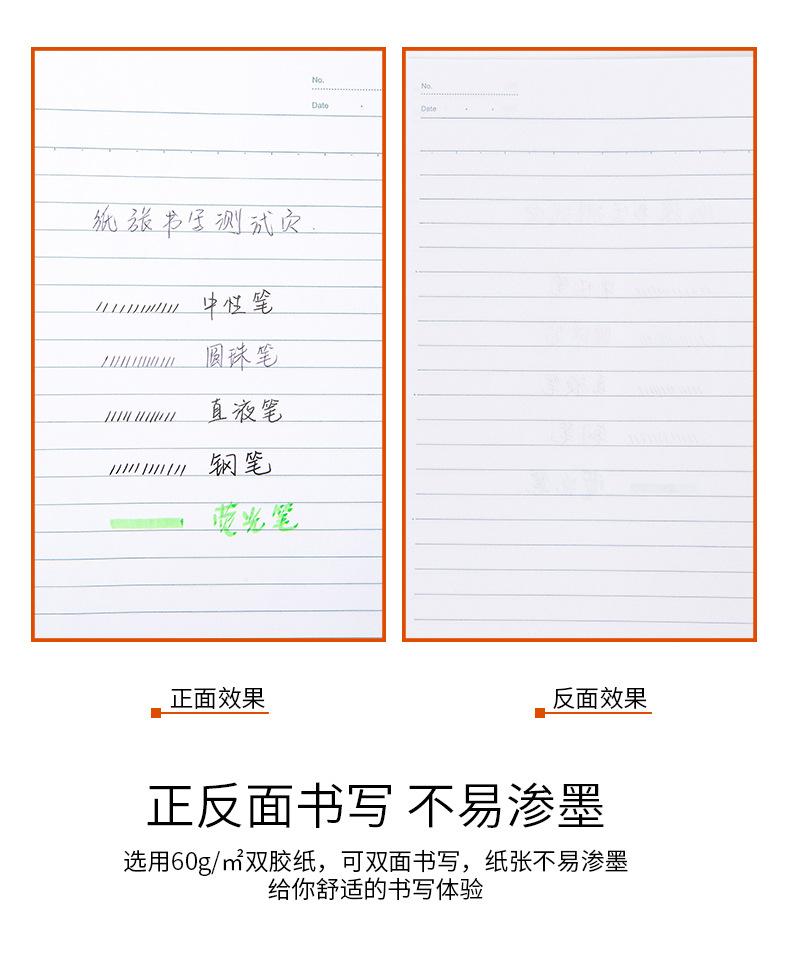 No.
Date
No.
Date
纸张书写测试页.
中性笔
圆珠笔
直液笔
钢笔
荧光笔
正面效果
反面效果
正反面书写 不易渗墨
选用60g/㎡双胶纸，可双面书写，纸张不易渗墨
给你舒适的书写体验